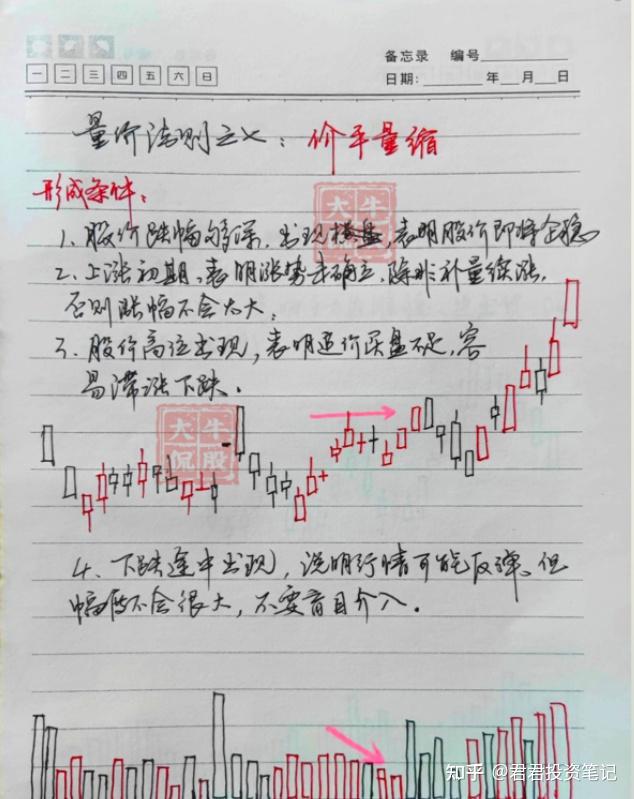 备忘录 编号
一 二 三 四 五 六 日
日期: 年 月 日
量价法则之七：价平量缩
形成条件：
大牛
侃股
1、股价跌幅够深，出现横盘，表明股价即将企稳
2、上涨初期，表明涨势未确立，除非补量续涨，
否则涨幅不会太大；
3、股价高位出现，表明追价买盘不足，容
易滞涨下跌。
大牛
侃股
4、下跌途中出现，说明行情可能反弹。但
幅度不会很大，不要盲目介入。
知乎 @君君投资笔记